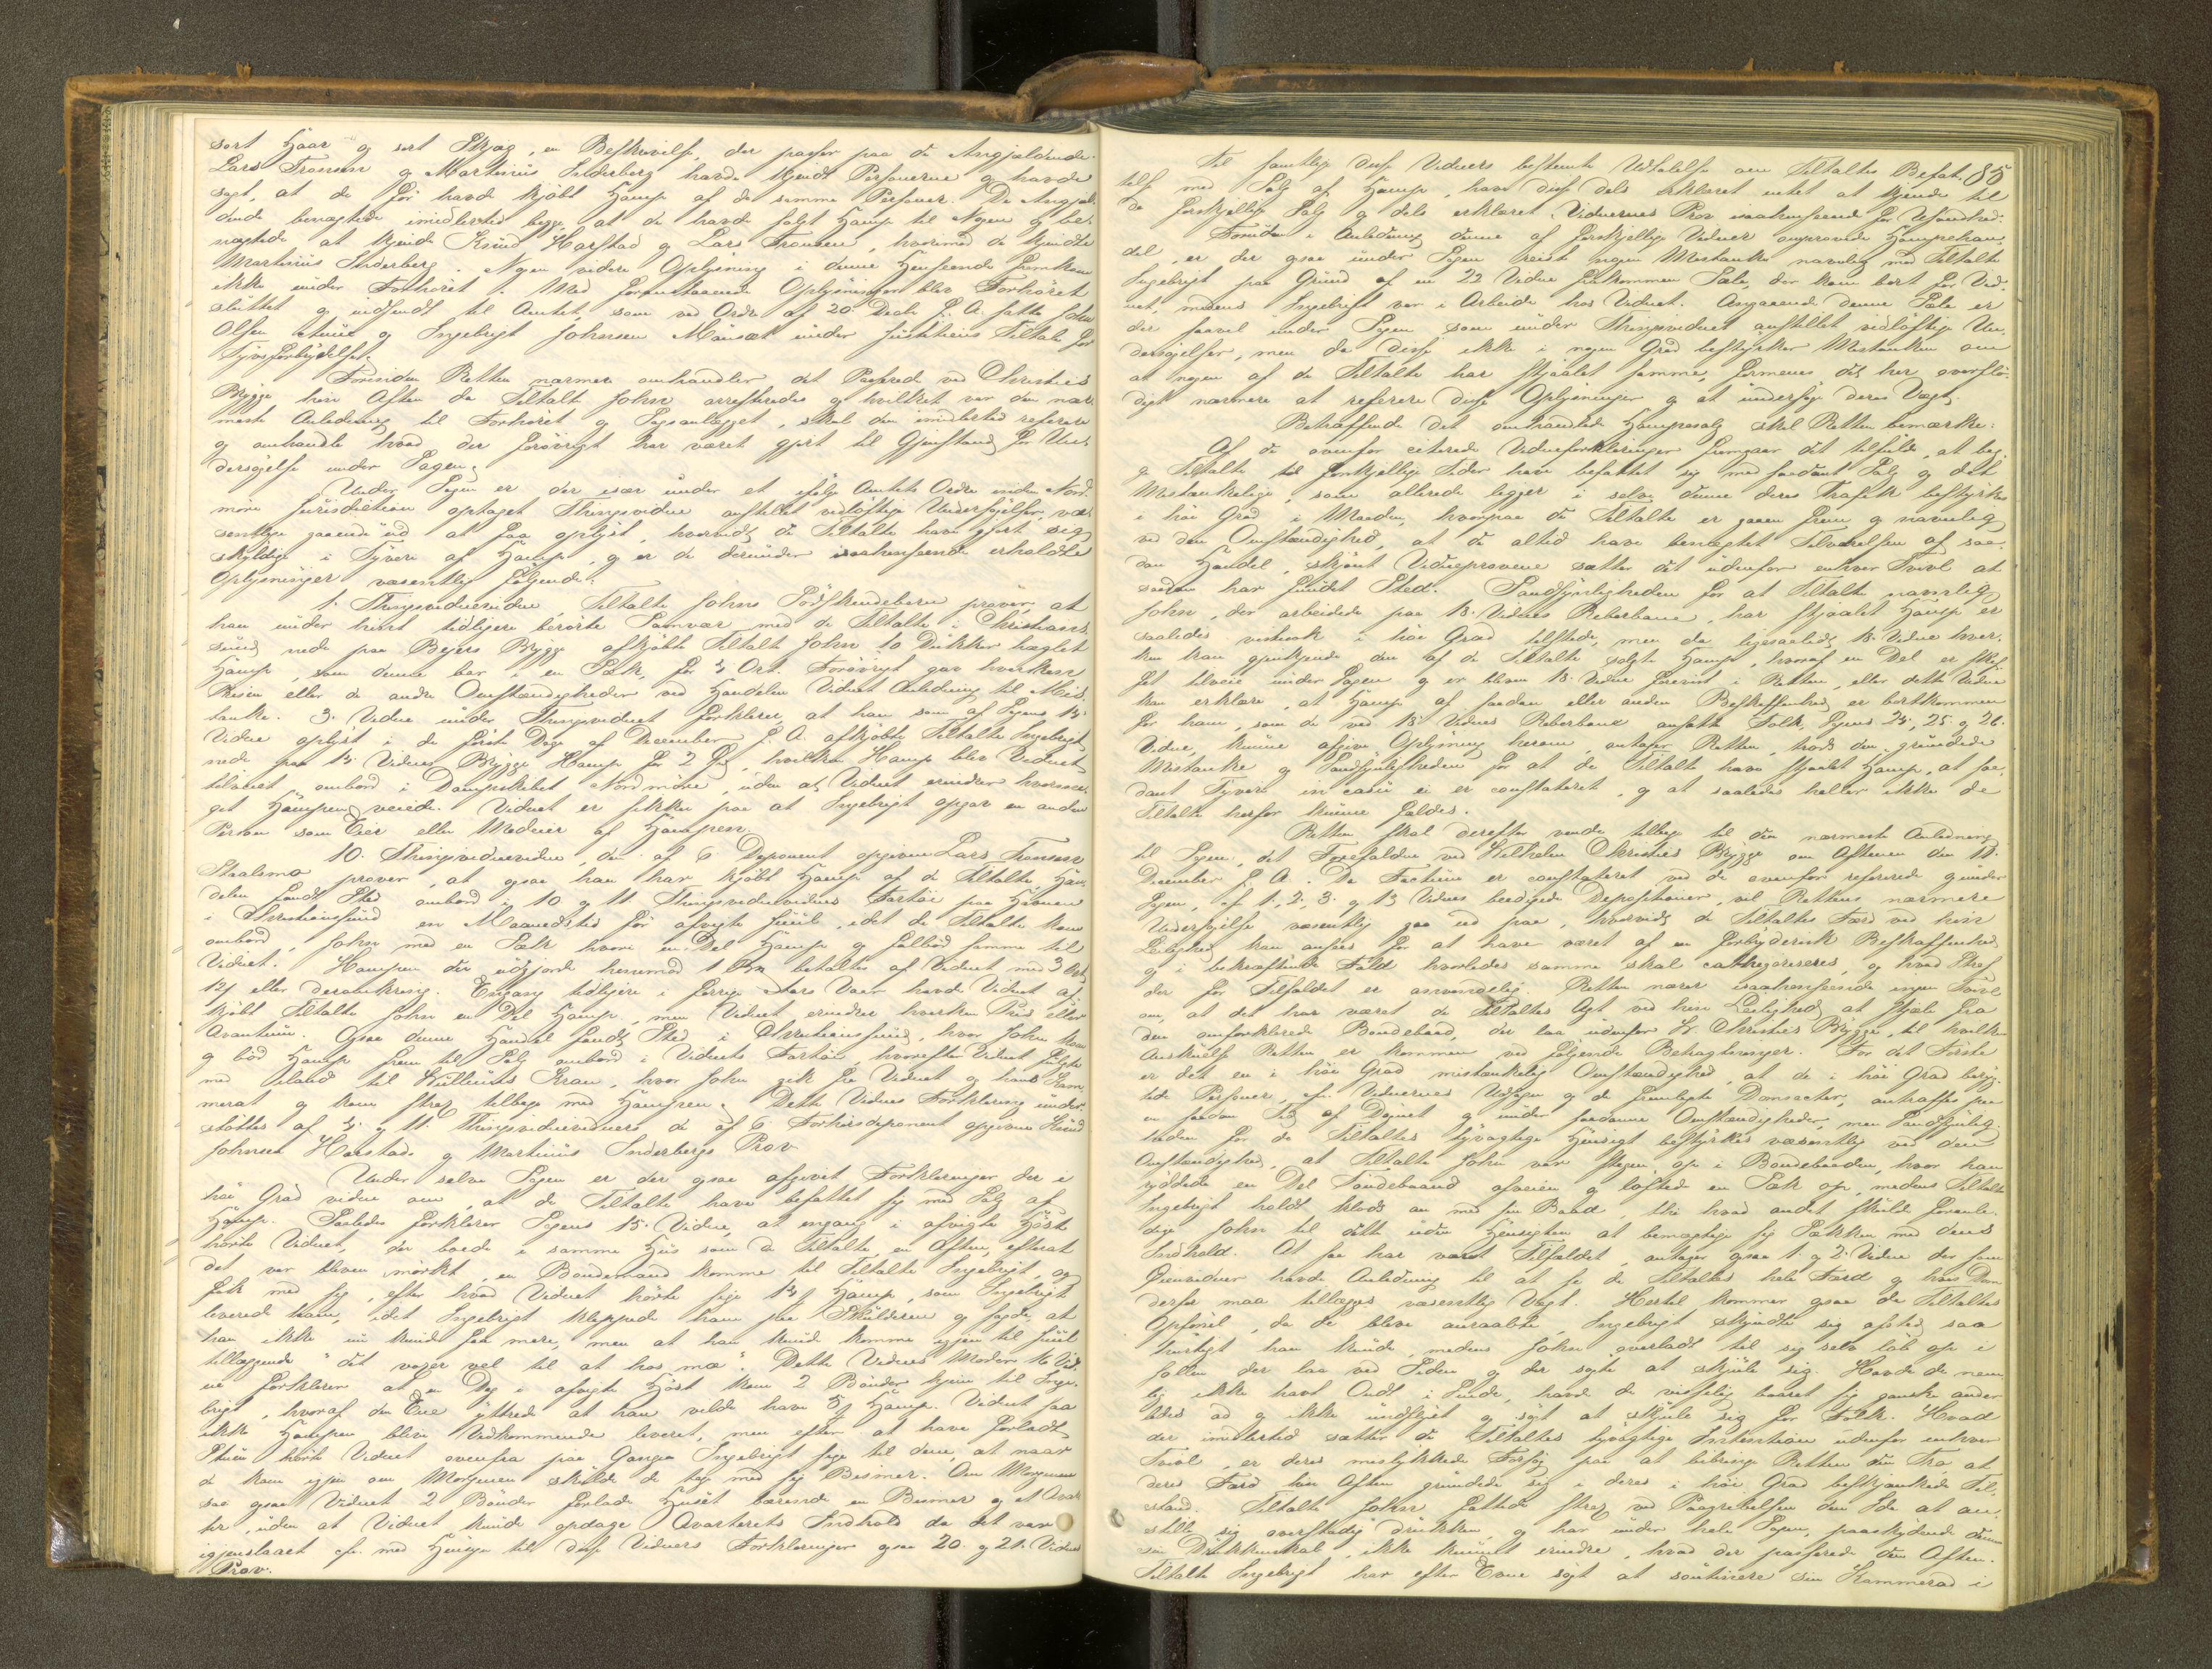 sort Haar og sort Skjæg, en Beskrivelse, der passer paa de Angjældende.
Lars Tronsen og Martinius Inderberg havde kjendt Personerne og havde
sagt, at de før havde kjøbt Hamp af de samme Personer. De Angjæl-
dende benægtede imidlertid begge, at de havde solgt Hamp til Nogen og be-
nægtede at kjende Knud Harstad og Lars Tronsen, hvorimod de kjendte
Martinius Inderberg. Nogen videre Oplysning i denne Henseende fremkom
ikke under Forhøret. Med foranstaaende Oplysninger blev Forhøret
sluttet og indsendt til Amtet, som ved Ordre af 20 Decbr. f. A. satte John
Olsen og Ingebrigt Johnsen under Justitiens Tiltale for
Tyvsforbrydelse.
Forinden Retten nærmere omhandler det Passerede ved Christies
Brygge hin Aften da Tiltalte John arresteredes og hvilket var den nær-
meste Anledning til Forhøret og Sagsanlægget, skal den imidlertid referere
og omhandle hvad der forøvrigt har været gjort til Gjenstand for Un-
dersøgelse under Sagen.
Under Sagen er der især under et ifølge Amtets Ordre inden Nord-
møre Jurisdiction optaget Thingsvidne anstillet vidløftige Undersøgelser, væ-
sentlig gaaende ud at faa oplyst, hvorvidt de Tiltalte have gjort sig
skyldige i Tyveri af Hamp, og er de derunder isaahenseende erholdte
Oplysninger væsentlig følgende:
1. Thingsvidnevidne, Tiltalte Johns Sødskendebarn prover, at
han under hint tidligere berørte Samvær med de Tiltalte i Christian-
sund nede paa Beyers Brygge afkjøbte Tiltalte John to Dukker heglet
Hamp, som denne bar i en Sæk, for 3 Ort. Forøvrigt gav hverken
Prisen eller de andre Omstændigheder ved Handelen Vidnet Anledning til Mis-
tanke. 3. Vidne under Thingsvidnet forklarer, at han som af Sagens 14.
Vidne oplyst i de første Dage af December f. A. afkjøbte Tiltalte Ingebrigt
nede paa 13. Vidnes Brygge Hamp for 2 Spd., hvilken Hamp blev Vidnet
tilbragt ombord i Dampskibet Nordmøre, uden at Vidnet erindrer hvormeget
get Hampen veiede. Vidnet er sikker paa at Ingebrigt opgav en anden
Person som Eier eller Medeier af Hampen.
10. Thingsvidnevidne, den af 6. Deponent opgivne Lars Tronsen
prover, at ogsaa han har kjøbt Hamp af de Tiltalte. Han-
delen fandt Sted ombord i 10. og 11. Thingsvidnevidners Fartøi paa Havnen
i Christiansund en Maanedstid før afvigte Juul, idet de Tiltalte kom
ombord, John med en Sæk hvori en Del Hamp og falbød samme til
Vidnet. Hampen der udgjorde henimod 1 betaltes af Vidnet med 3 Ort
12 eller deromkring. Engang tidligere i forrige Aars Vaar havde Vidnet af-
kjøbt Tiltalte John en Del Hamp, men Vidnet erindrer hverken Pris eller
Qvantum. Ogsaa denne Handel fandt Sted i Christiansund, hvor John kom
og bød Hamp frem til Salg ombord i Vidnets Fartøi, hvorefter Vidnet fulgte
med iland til Kran, hvor John gik fra Vidnet og hans Kam-
merat og kom strax tilbage med Hampen. Dette Vidnes Forklaring under-
støttes af 3. og 11. Thingsvidnevidners de af 6. Forhørsdeponent opgivne Knud
Johnsen Harstad og Martinius Inderbergs Prov.
Under selve Sagen er der ogsaa afgivet Forklaringer der i
høi Grad vidne om, at de Tiltalte have befattet sig med Salg af
Hamp. Saaledes forklarer Sagens 15. Vidne, at engang i afvigte Høst
hørte Vidnet, der boede i samme Hus som de Tiltalte, en Aften, efterat
det var bleven mørkt, en Bondemand komme til Tiltalte Ingebrigt, og
fik med sig, efter hvad Vidnet hørte sige Hamp, som Ingebrigt
leverede ham, idet Ingebrigt klappede ham paa Skulderen og sagde, at
han ikke nu kunde faa mere, men at han kunde komme igjen til Juul
tilføiende "det voxer vel til at hos mæ". Dette Vidnes Moder 16. Vid-
ne forklarer at en Dag i afvigte Høst kom 2 Bønder hjem til Inge-
brigt, hvoraf den Ene yttrede at han vilde have Hamp. Vidnet saa
ikke Hampen blive Vedkommende leveret, men efter at have forladt
Stuen hørte Vidnet ovenfra paa Gangen Ingebrigt sige til dem, at naar
de kom igjen om Morgenen skulde de tage med sig Bismer. Om Morgenen
saa ogsaa Vidnet 2 Bønder forlade Huset bærende en Bismer og et Qvar-
ter, uden at Vidnet kunde opdage Qvarterets Indhold da det var
igjenslaaet cfr. med Hensyn til disse Vidners Forklaringer ogsaa 20. og 21. Vidnes
Prov.
85
Til samtlige disse Vidners bestemte Udtalelse om Tiltaltes Befat-
telse med Salg af Hamp, have disse dels erklæret intet at kjende til
de forskjellige Salg og dels erklæret Vidnernes Prov isaahenseende for Usandhed.
Foruden i Anledning denne af forskjellige Vidner omprovede Hampehan-
del, er der ogsaa under Sagen reist nogen Mistanke navnlig mod Tiltalte
Ingebrigt paa Grund af en 22 Vidne frakommen Sæle, der kom bort for Vid-
net, medens Ingebrigt var i Arbeide hos Vidnet. Angaaende denne Sæle er
der saavel under Sagen som under Thingsvidnet anstillet vidløftige Un-
dersøgelser, men da disse ikke i nogen Grad bestyrker Mistanken om
at nogen af de Tiltalte har stjaalet samme, formenes det her overflø-
digt nærmere at referere disse Oplysninger og at undersøge deres Vægt.
Betræffende det omhandlede Hampesalg skal Retten bemærke:
Af de ovenfor citerede Vidneforklaringer fremgaar det tilfulde, at beg-
ge Tiltalte til forskjellige Tider have befattet sig med saadant Salg og det
Mistænkelige, som allerede ligger i selve denne deres Trafik bestyrkes
i høi Grad i Maaden, hvorpaa de Tiltalte er gaaet frem og navnlig
ved den Omstændighed, at de altid have benægtet Tilværelsen af saa-
dan Handel, skjønt Vidneprovene sætter det udenfor enhver Tvivl at
saadan har fundet Sted. Sandsynligheden for at Tiltalte navnlig
John, der arbeidede paa 13. Vidnes Reberbane, har stjaalet Hamp er
saaledes vistnok i høi Grad tilstede, men da ligesaalidt 13. Vidne hver-
ken kan gjenkjende den af de Tiltalte solgte Hamp, hvoraf en Del er skaf-
fet tilveie under Sagen og er bleven 13. Vidne forevist i Retten, eller dette Vidne
kan erklære, at Hamp af saadan eller anden Beskaffenhed er bortkommen
for ham, som de ved 13. Vidnes Reberbane ansatte Folk, Sagens 24, 25. og 26.
Vidne, kunne afgive Oplysning herom, antager Retten, trods den grundede
Mistanke og Sandsynligheden for at de Tiltalte have stjaalet Hamp, at saa-
dant Tyveri in casu ei er constateret, og at saaledes heller ikke de
Tiltalte herfor kunne fældes.
Retten skal derefter vende tilbage til den nærmeste Anledning
til Sagen, det Forefaldne ved Wilhelm Christies Brygge om Aftenen den 13.
December f. A. Da Factum er constateret ved de ovenfor refererede under
Sagen, cf. 1, 2, 3. og 13 Vidnes beedigede Depositioner, vil Rettens nærmere
Undersøgelse væsentlig gaa ud paa, hvorvidt de Tiltaltes Færd ved hin
Leilighed kan ansees for at have været af en forbryderisk Beskaffenhed
og i bekræftende Fald hvorledes samme skal cathegoriseres, og hvad Straf
der for Tilfældet er anvendelig. Retten nærer isaahenseende ingen Tvivl
om, at det har været de Tiltaltes Agt ved hin Leilighed at stjæle fra
den omforklarede Bondebaad, der laa udenfor W. Christies Brygge, til hvilken
Anskuelse Retten er kommen ved følgende Betragtninger. For det Første
er det en i høi Grad mistænkelig Omstændighed, at de i høi Grad beryg-
tede Personer, cfr. Vidnernes Udsagn og de fremlagte Domsacter, antræffes paa
en saadan Tid af Døgnet og under saadanne Omstændigheder, men Sandsynlig-
heden for de Tiltaltes tyvagtige Hensigt bestyrkes væsentlig ved den
Omstændighed, at Tiltalte John var stegen op i Bondebaaden, hvor han
ryddede en Del Tøndebaand afveien og løftede en Sæk op, medens Tiltalte
Ingebrigt holdt klods an med sin Baad, thi hvad andet skulde foranle-
dige John til dette uden Hensigten at bemægtige sig Sækken med dens
Indhold. At saa har været Tilfældet, antager ogsaa 1. og 2. Vidne der som
Øienvidner havde Anledning til at se de Tiltaltes hele Færd og hvis Dom
derfor maa tillægges væsentlig Vægt. Hertil kommer ogsaa de Tiltaltes
Opførsel, da de bleve anraabte, Ingebrigt skyndte sig afsted saa
hurtigt han kunde, medens John overladt til sig selv løb op i
der laa ved Siden og der søgte at skjule sig. Havde de nem-
lig ikke havt Ondt i Sinde, havde de visselig baaret sig ganske ander-
ledes ad og ikke undflyet og søgt at skjule sig for Folk. Hvad
der imidlertid sætter de Tiltaltes tyvagtige Intention udenfor enhver
Tvivl, er deres mislykkede Forsøg paa at bibringe Retten den Tro, at
deres Færd hin Aften grundede sig i deres i høi Grad beskjænkede Til-
stand. Tiltalte John fattede strax ved Paagribelsen den Ide at an-
stille sig overstadig drukken, og har under hele Sagen, paaskydende denne
sin Drukkenskab, ikke kunnet erindre, hvad der passerede den Aften.
Tiltalte Ingebrigt har efter Evne søgt at soutinere sin Kammerad i